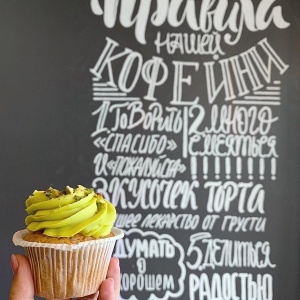 Правила
нашей
КОФЕЙНИ
1. Говорить
«СПАСИБО»
И «ПОЖАЛУЙСТА»
2. Много
смеяться
!!!!!!!
3. Кусочек торта
лекарство от грусти
ДУМАТЬ
О
ХОРОШЕМ
5. Делиться
РАДОСТЬЮ